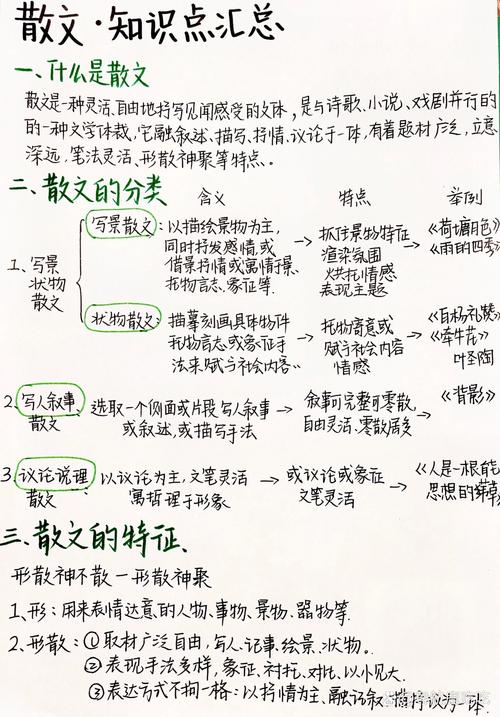 散文·知识点汇总
一、什么是散文
散文是一种灵活、自由地抒写见闻感受的文体,是与诗歌、小说、戏剧并行的
的一种文学体裁,它融叙述、描写、抒情、议论于一体,有着题材广泛,立意
深远,笔法灵活、形散神聚等特点.。
二、散文的分类
含义 特点 举例
1、写景
状物
散文
写景散文:以描绘景物为主,
同时抒发感情,或
借景抒情或寓情于景、
托物言志、象征等.
→抓住景物特征
渲染氛围
烘托情感
表现主题
→《荷塘月色》
《雨的四季》
状物散文:描摹刻画具体物件
托物言志或象征手
法来“赋与社会内容”
→托物寄意或
赋与社会内容
情感
→《白杨礼赞》
《牵牛花》
叶圣陶
2.写人叙事、选取一个侧面或片段写人叙事
散文 或叙述,或描写手法
→叙事可完整可零散,
自由灵活、零散居多
→《背影》
3.议论说理 以议论为主,文笔灵活
散文 寓哲理于形象
→或议论或象征
文笔灵活
→《人是一根能
思想的苇草
三、散文的特征、
形散神不散—形散神聚
1、形:用来表情达意的人物、事物、景物、器物等.
2、形散:①取材广泛自由,写人、记事、绘景、状物。
②表现手法多样,象征、衬托、对比、以小见大.
③表达方式不拘一格:以抒情为主,融记叙、描